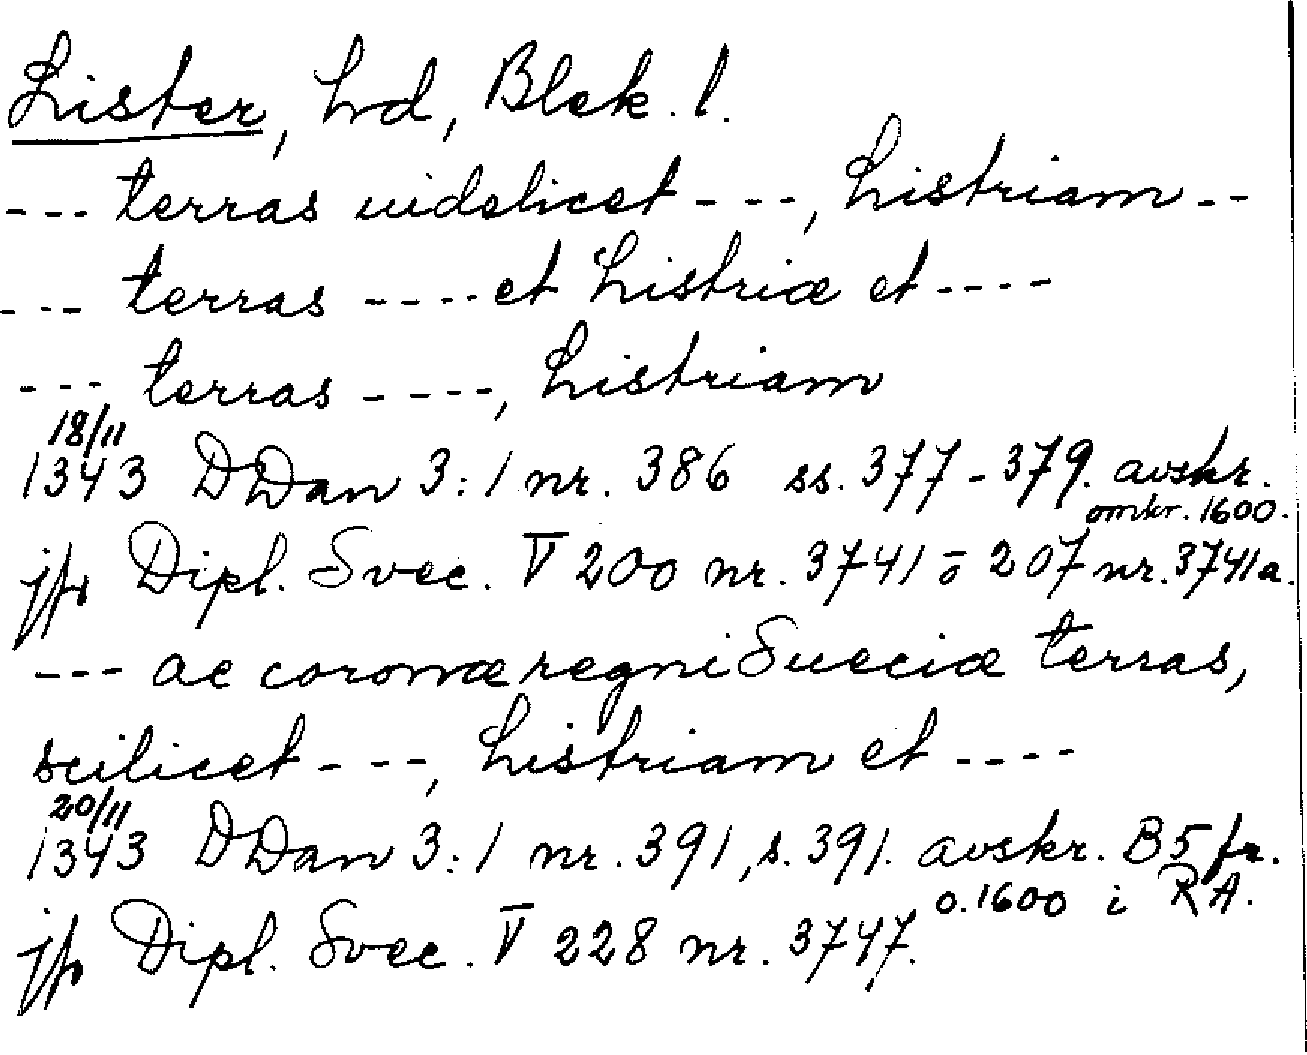 Lister, hd, Blek. l.
--- terras uidelicet ---, Listriam --
--- terras ---- et Listriæ et ----
--- terras ----, Listriam
18/11
1343 DDan 3:1 nr. 386 ss. 377-379. avskr.
omkr. 1600.
jfr Dipl. Svec. V 200 nr. 3741 o 207 nr. 3741a.
--- ac coronæ regni Sueciæ terras,
scilicet ---, Listriam et ----
20/11
1343 DDan 3:1 nr. 391, s. 391. avskr. B5 fr.
o. 1600 i RA.
jfr Dipl. Svec. V 228 nr. 3747.